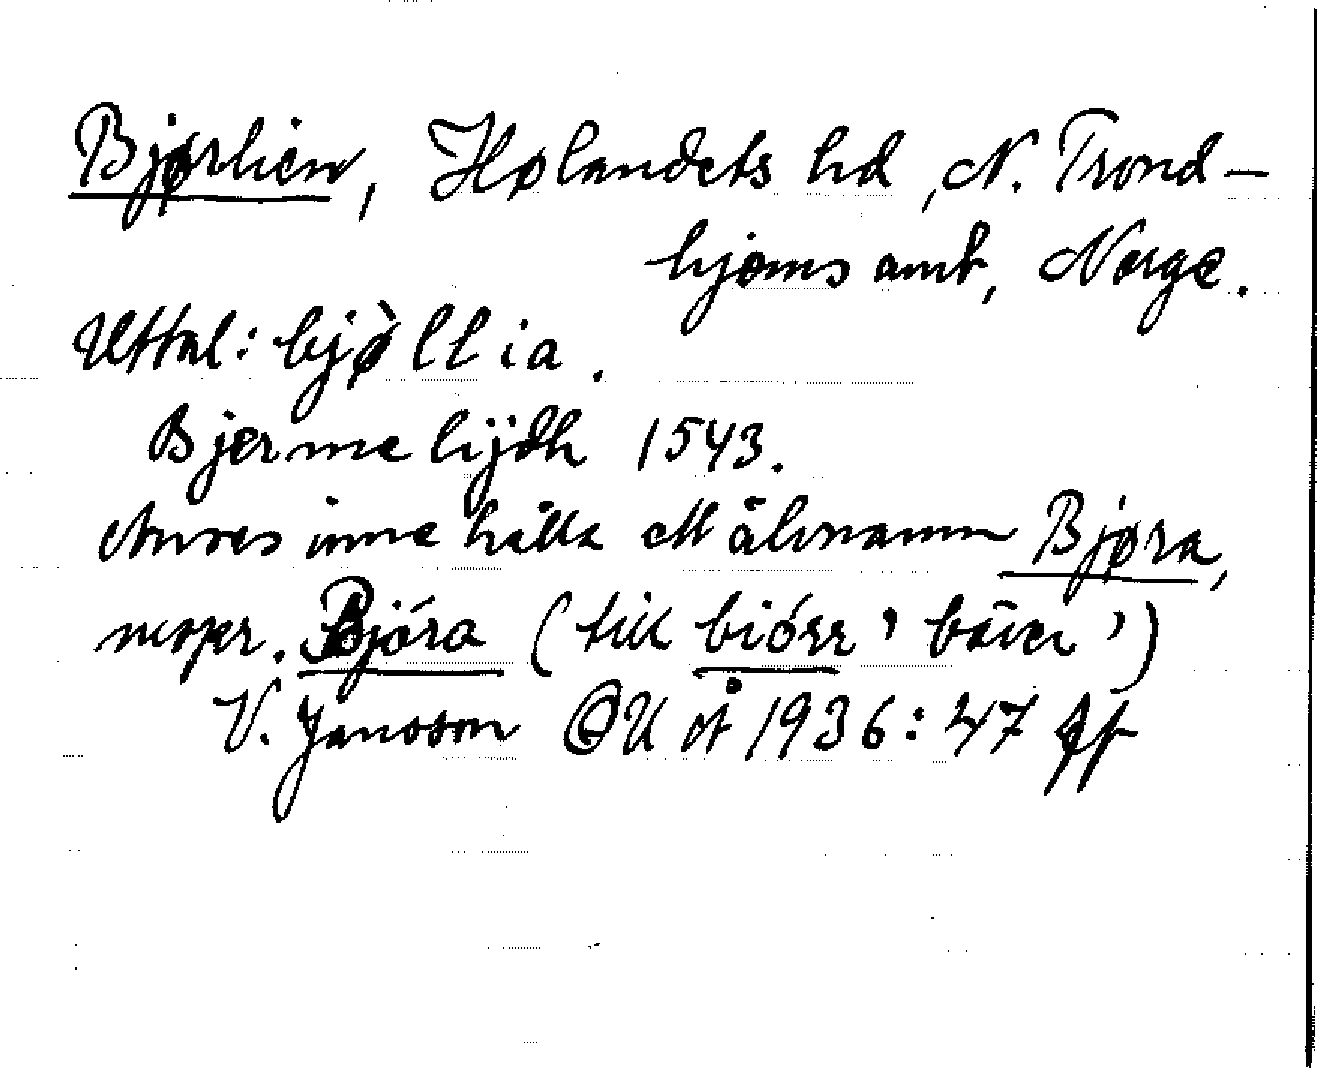 Bjørlien, Hølandets hd, N. Trond-
hjems amt, Norge.
Uttal: bjø̀llia.
Bjerme lijdh 1543.
Anses innehålla älvnamn Bjøra,
Bjóra (till biórr 'bäver')
V. Jansson OUÅ 1936: 47 ff